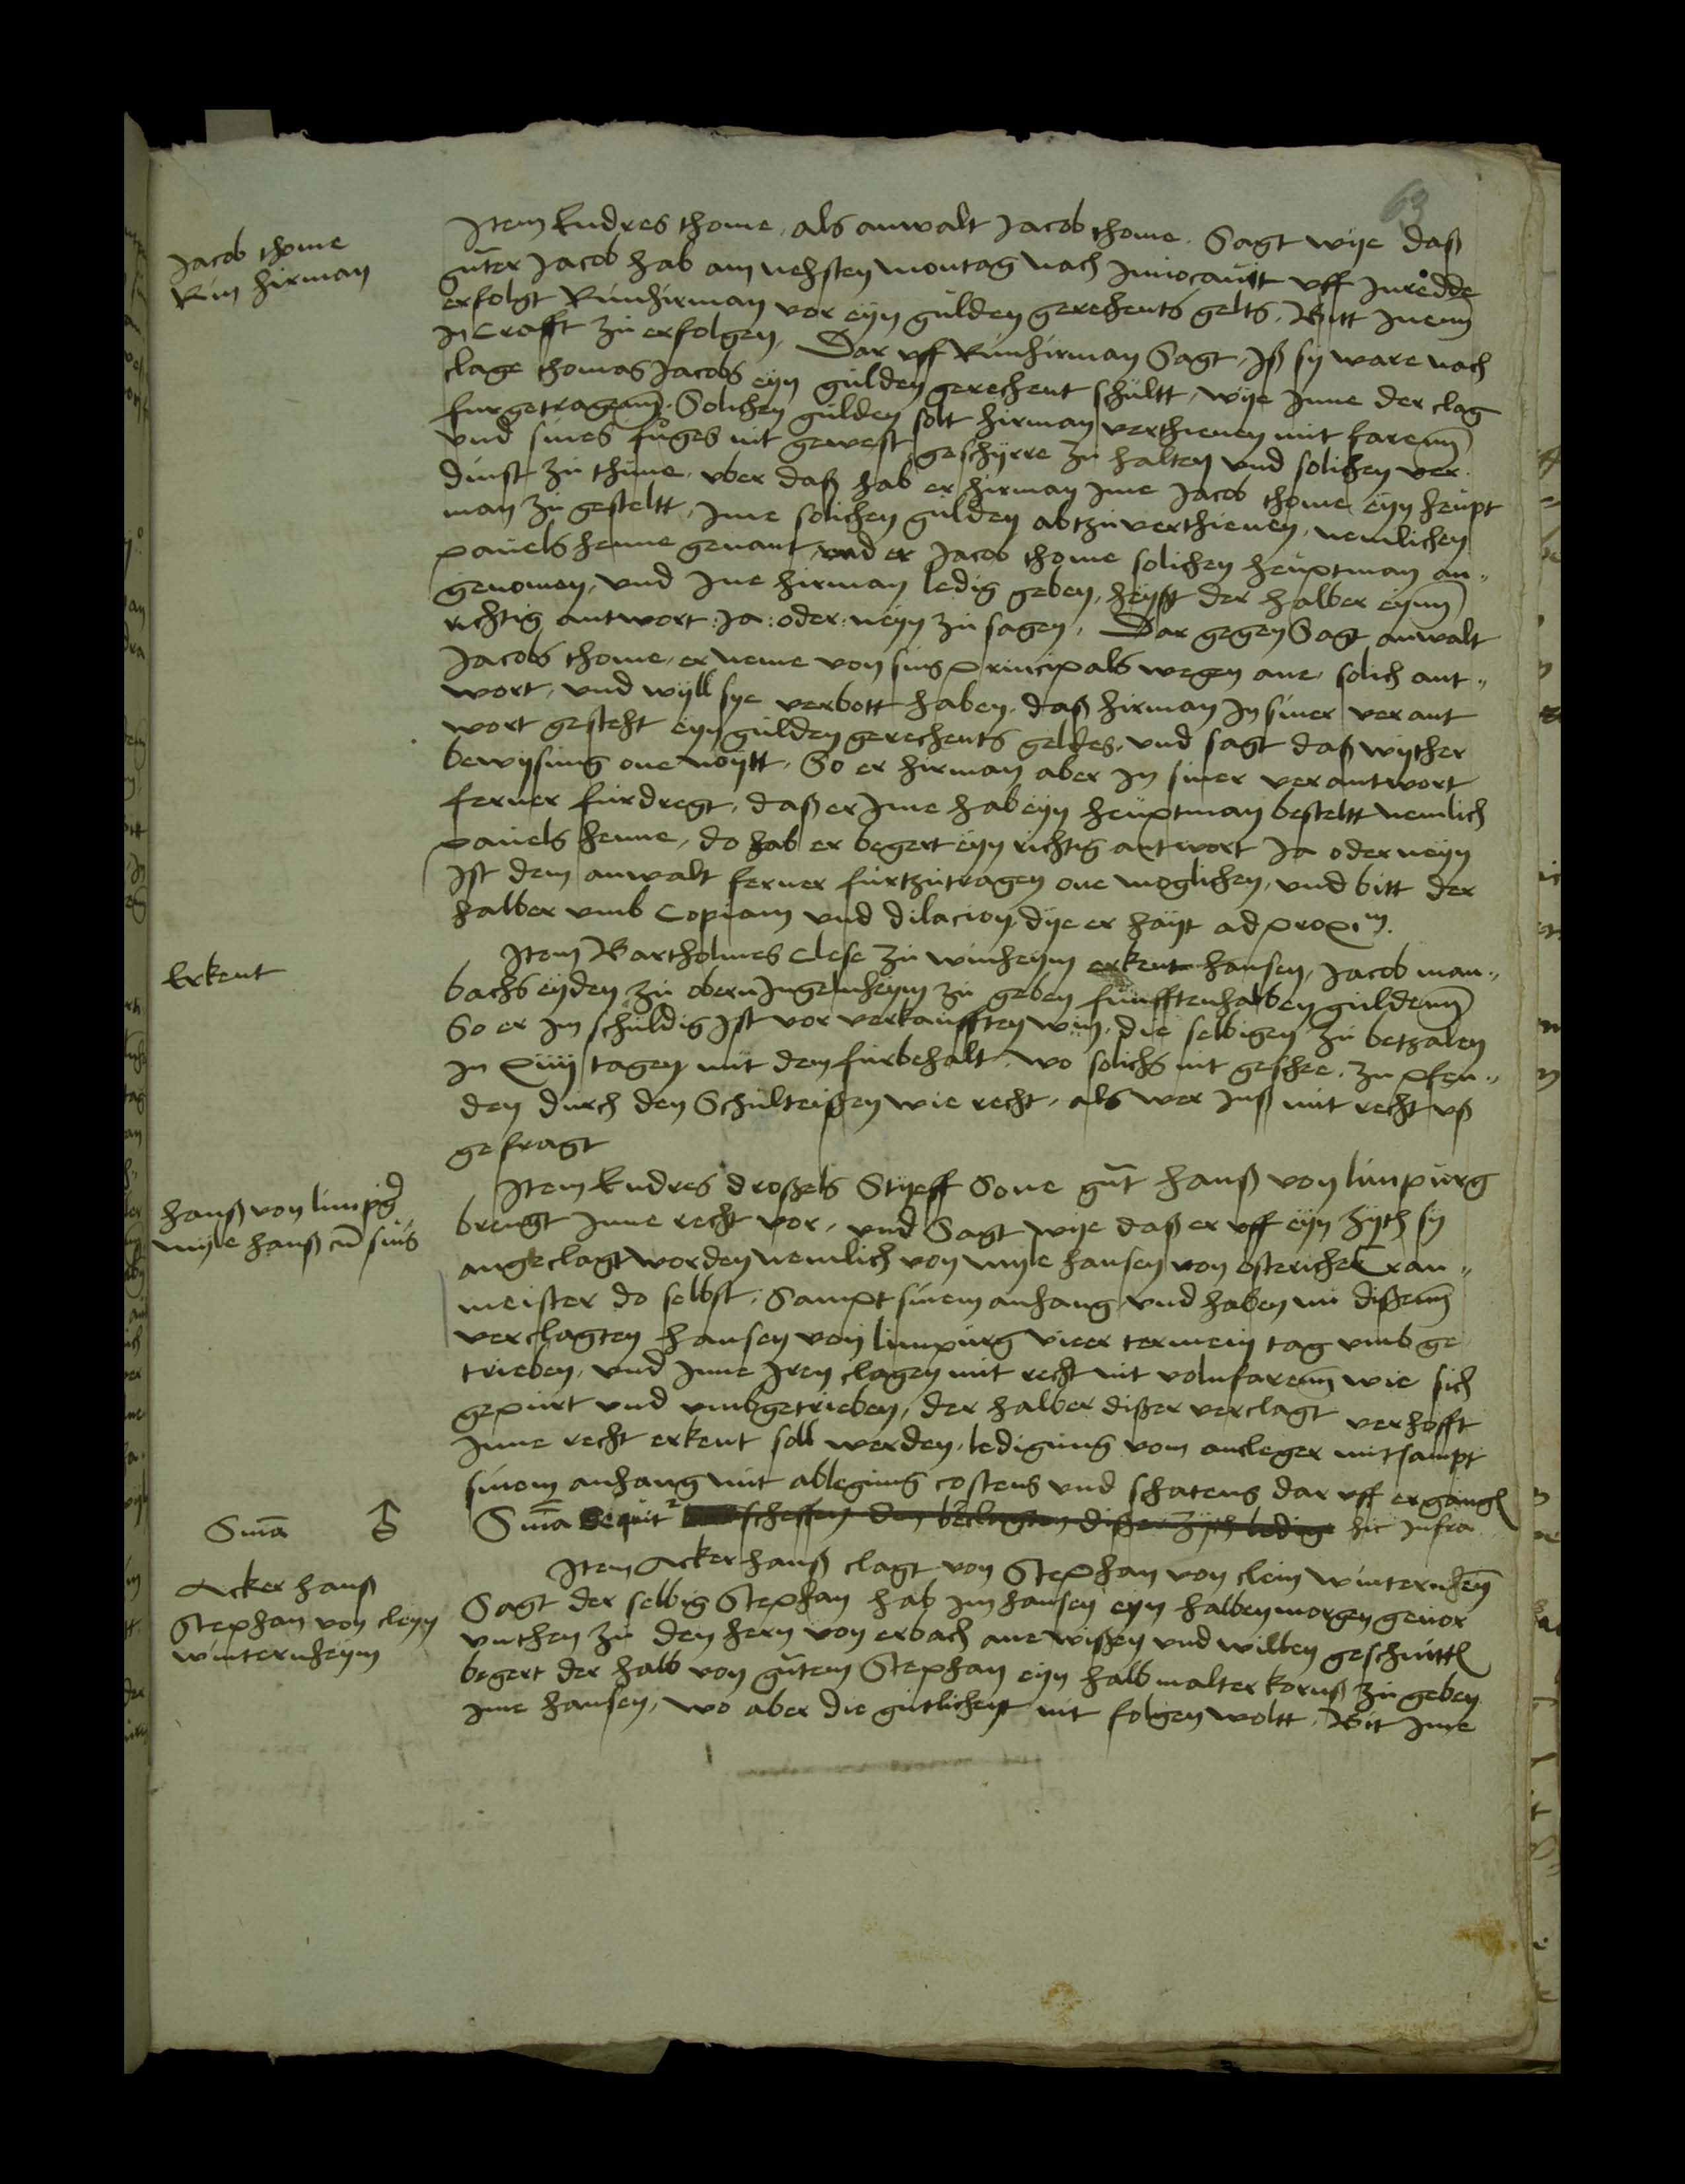 63
Jacob thome
Rún hirman
Item Endres thome, als anwalt Jacob thome. Sagt wije daß
guter Jacob hab am nehsten montag nach Jnuocauit vff Jnredde
erfolgt Rúnhirman vor eyn gulden gerechents gelts. Bitt Jnenn
Jn Crafft zu erfolgen. Dar vff Rúnhirman Sagt, Jß sy ware nach
clage thomas Jacobs eyn gulden gerechent schultt, wije Jnne der clag
furgetragenn. Solichen gulden solt hirman verthienen mit farenn
vnd sines fuges nit gewest, geschyrre zu halten vnd solichen ver
dinst zu thune, vber daß hab er hirman Jme Jacob thome eyn heupt
man zu gesteltt, Jme solichen gulden abtzuverthienen, nemlichen
pauels henne genant, vnd er Jacob thome solichen heuptman an„
genomen, vnd Jne hirman ledig geben, heyst der halber eynn
richtig antwort : Ja : oder : neyn zu sagen. Dar gegen Sagt anwalt
Jacobs thome, er neme von sins principals wegen ane solich ant„
wort, vnd wyll sye verbott haben, daß hirman Jn siner verant
wort gesteht eyn gulden gerechents geldes, vnd sagt daß wyther
bewysung one noytt. So er hirman aber Jn siner verantwort
ferner furdregt, daß er Jme hab eyn heuptman bestelltt nemlich
pauels henne, do hab er begert eyn richtig antwort Ja oder neyn
Jst dem anwalt ferner furtzutragen one moglichen, vnd bitt der
halber vmb Copiam vnd dilacion, dye er hayt ad proxim.
Erkent
Item Bartholmes Clese zu winheym erkent hansen, Jacob man„
bachs eyden zu obern Jngelnheym zu geben funfftenhalben guldenn
So er Jm schuldig Jst vor verkaufften win, die selbigen zu betzalen
Jn xiiij tagen mit dem furbehalt, wo solichs nit geschee, zu pfen„
den durch den Schulteißen wie recht, als wer Jnß mit recht vß
gefragt
hanß von limpg
myle hanß cu suis
Item Endres droßels Styeff Sone gut hanß von limpurg
brengt Jnne recht vor, vnd Sagt wye daß er vff eyn zyth sy
angeclagt worden nemlich von myle hansen von osterich Cran„
meister do selbst, Sampt sinem anhang, vnd haben nu dißenn
verclagten hansen von limpurg vieer termein tag vmb ge
trieben, vnd Jnne Jren clagen mit recht nit volnfarenn wie sich
gepurt vnd vmbgetrieben, der halber dißer verclagt verhofft
Jnne recht erkent soll werden, ledigung vom ancleger mitsampt
sinem anhang mit ablegung costens vnd schatens dar vff ergangen
Sma
Sma sequitur scheffen den beclagten dißer zyth ledig hic Jnfra
Acker hanß
Stephan von cleyn
winternheym
Item Acker hanß clagt von Stephan von clein winternheym
Sagt der selbig Stephan hab Jm hansen eyn halben morgen
vnthen zu den hern von erbach ane wißen vnd willen geschnitten
begert der halb von gutem Stephan eyn halb malter kornß zu geben
Jme hansen, wo aber die gutlicheyt nit folgen woltt, Bit Jme